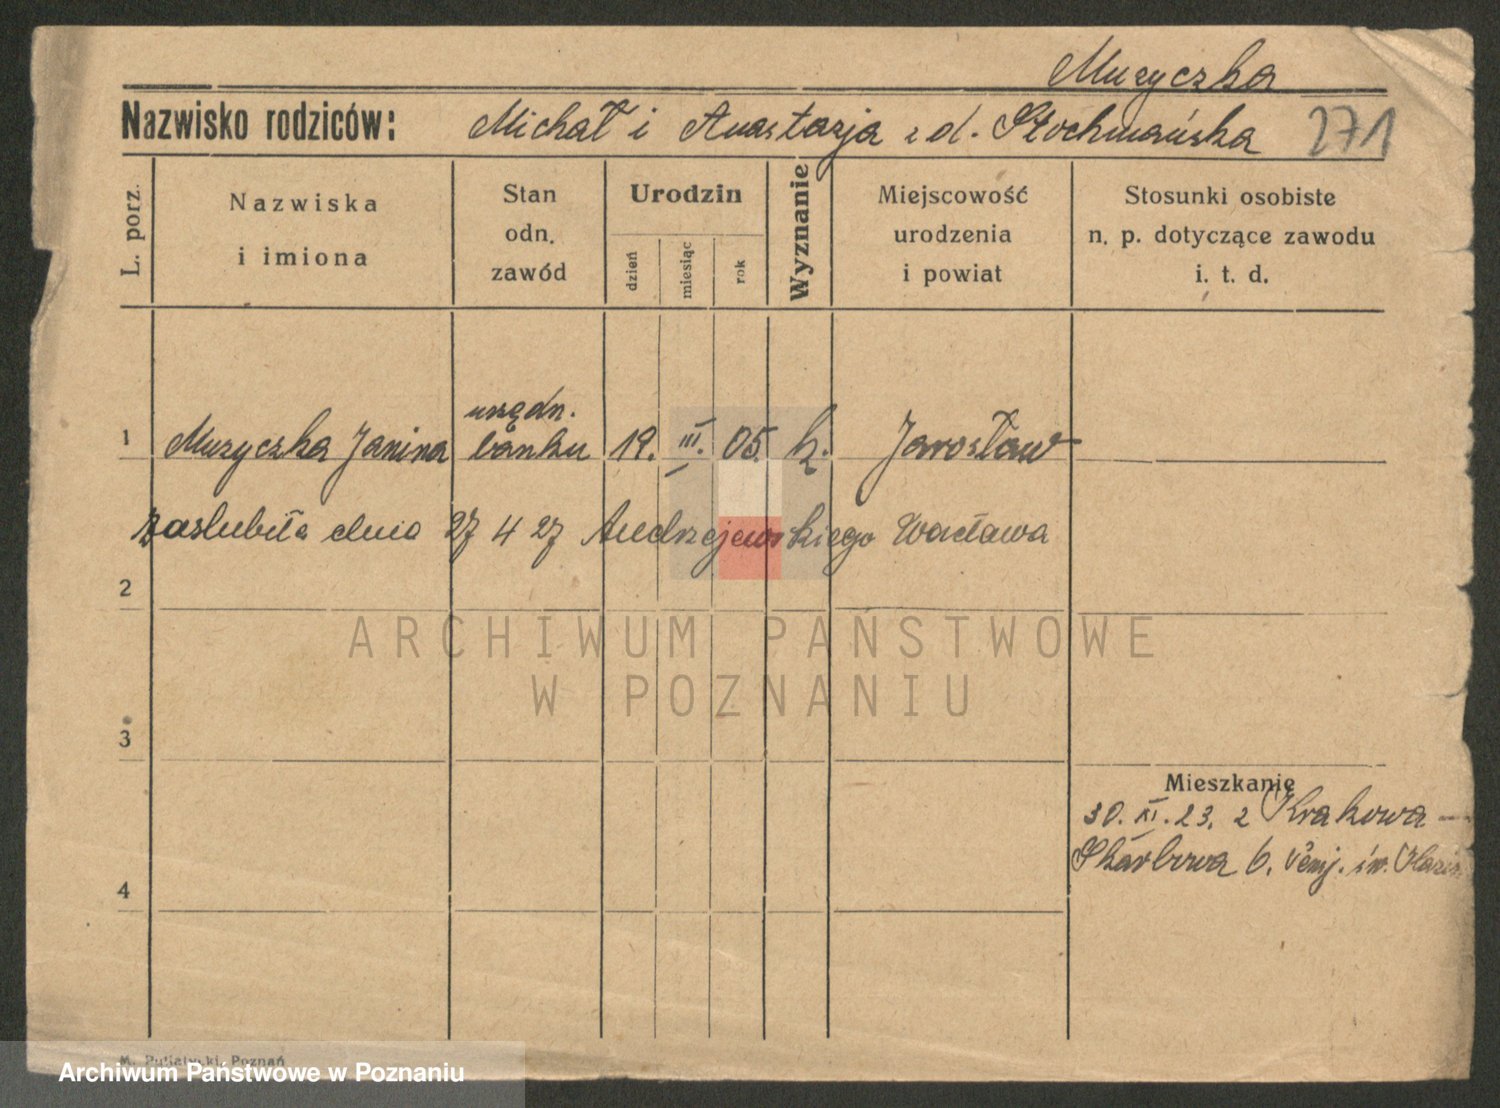 Muzyczka
Nazwisko rodziców: Michał i Anastazja z d. Stochmańska 271
L. porz.
Nazwiska
i imiona
Stan
odn.
zawód
Urodzin
dzień
miesiąc
rok
Wyznanie
Miejscowość
urodzenia
i powiat
Stosunki osobiste
n. p. dotyczące zawodu
i. t. d.
urzędn.
1 Muzyczka Janina banku 19. III. 05. k. Jarosław
zaslubiła dnia 27 4 27 Andrzejewskiego Wacława
2
ARCHIWUM PAŃSTWOWE
W POZNANIU
3
Mieszkanie
30. XI. 23. z Krakowa
Skarbowa 6. św.
4
M. Poznań
Archiwum Państwowe w Poznaniu